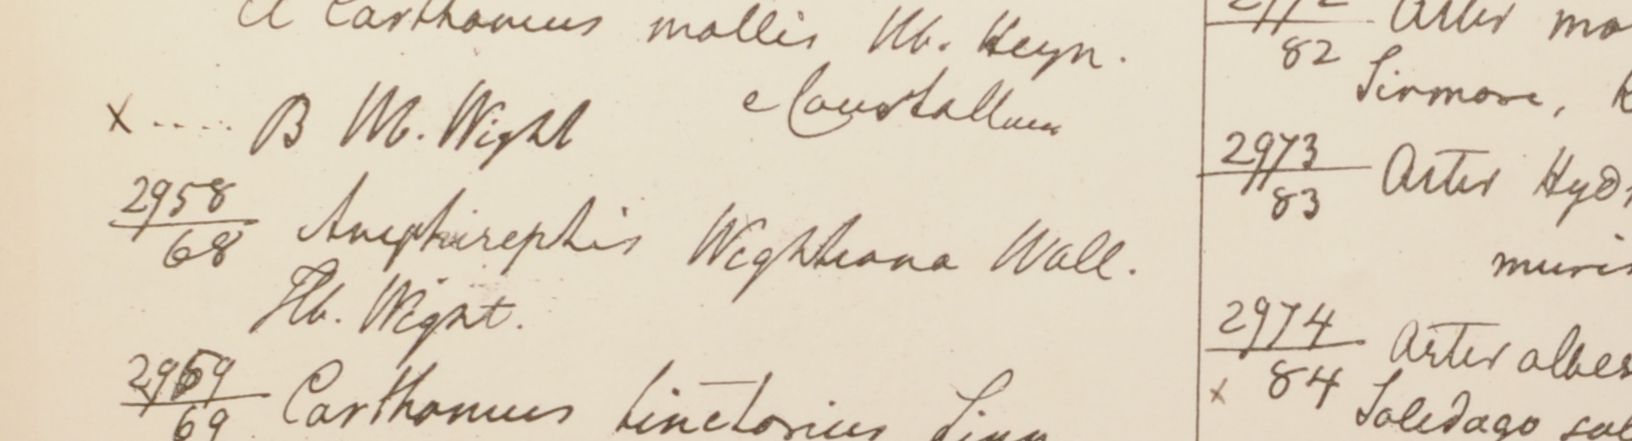 A Carthamus mollis Hb. Heyn.
e Courtallum
x .... B Hb. Wight
2958
68 Amphirephis Wightiana Wall.
Hb. Wight.
2959
69 Carthamus tinctorius Linn
2972
82 Aster mo
Sirmore,
2973
83 Aster Hyd
muris
2974
x 84 Aster albes
Solidago